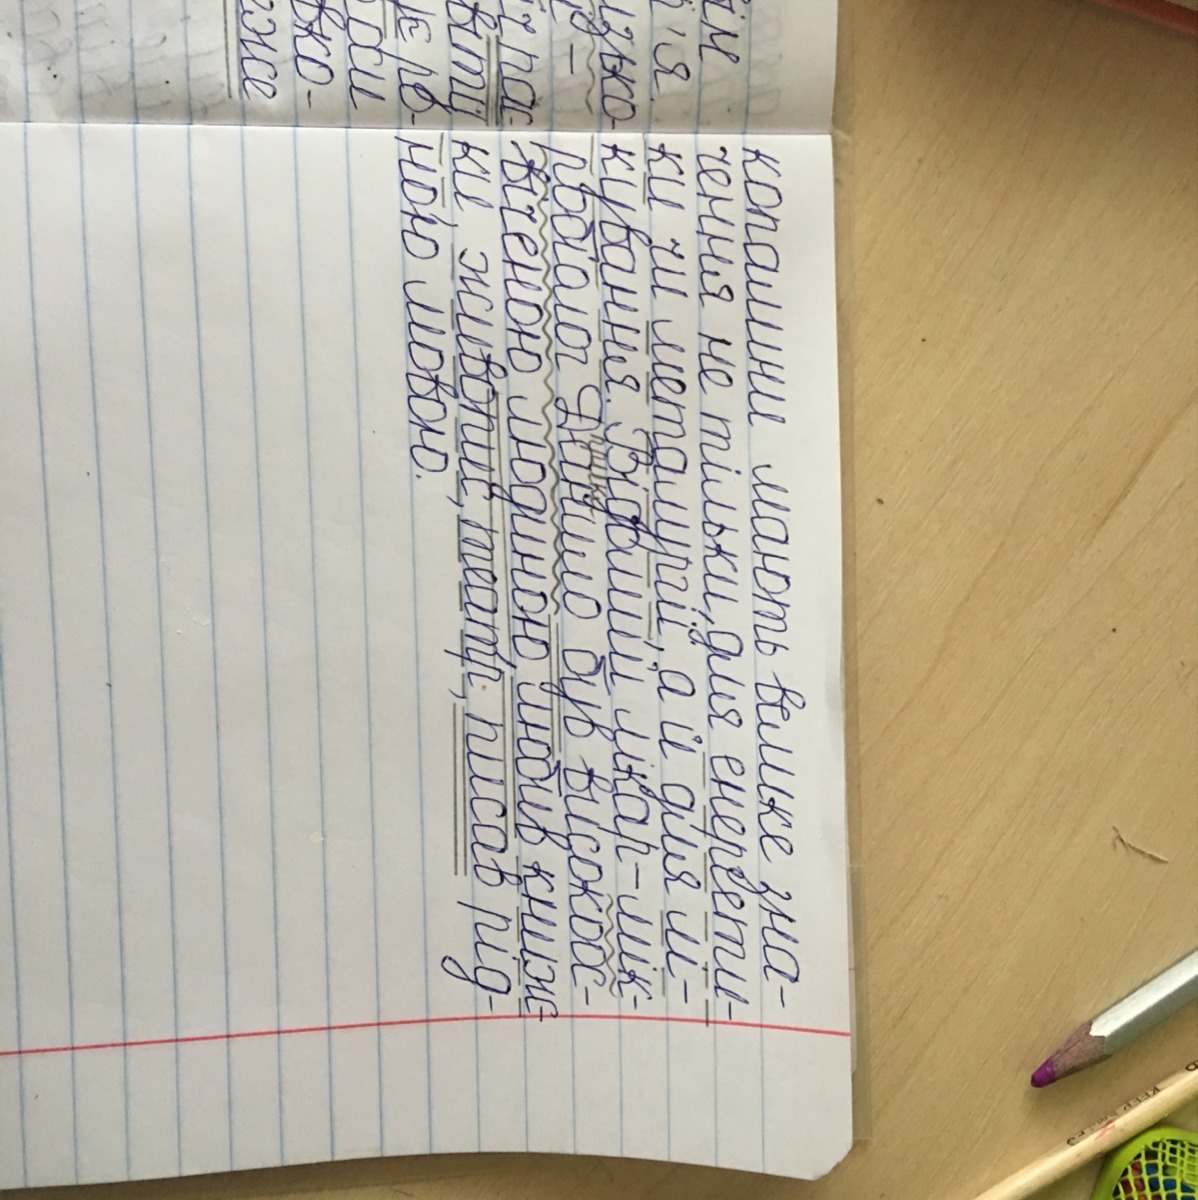 ім
'я.
зько-
вити
ро-
оби
вко-
копалини мають велике зна-
чення не тільки, для енергети-
ки чи металургії, а й для лі-
кування. Відомий лікар-мік-
робіолог Данило був високоос-
віченою людиною любив книж-
ки, живопис, театр, писав рід-
ною мовою.